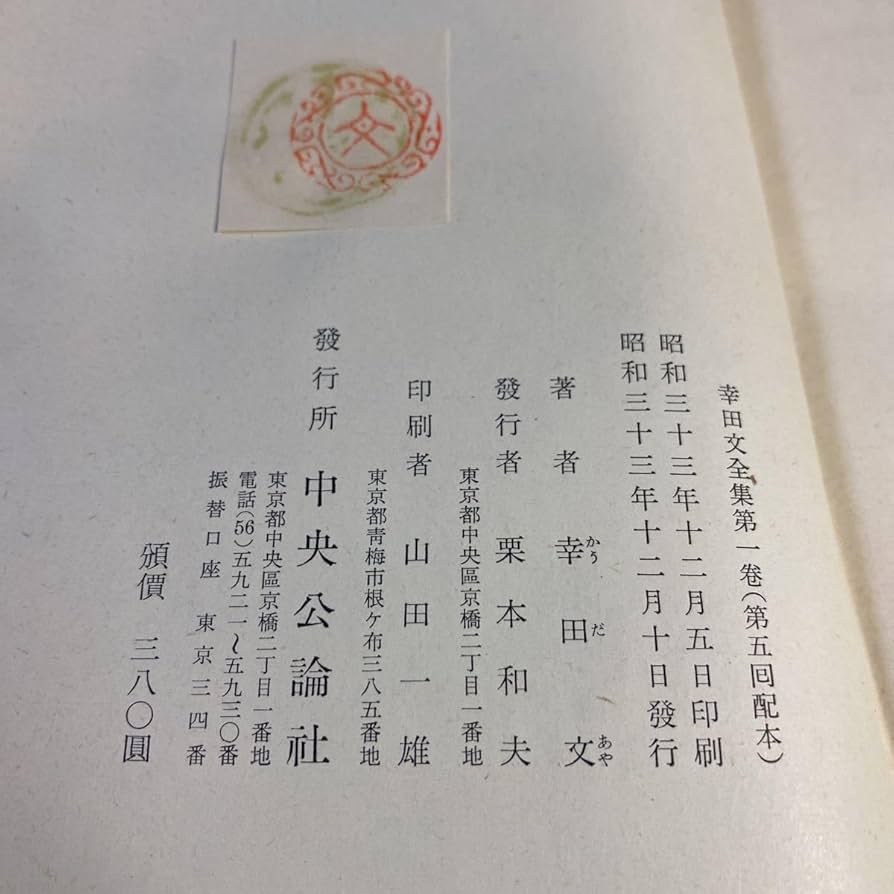 文
幸田文全集第一卷(第五回配本)
昭和三十三年十二月五日印刷
昭和三十三年十二月十日發行
著者 幸田文
かうだあや
發行者 栗本和夫
東京都中央區京橋二丁目一番地
印刷者 山田一雄
東京都青梅市根ケ布三八五番地
發行所 中央公論社
東京都中央區京橋二丁目一番地
電話(56)五九二一〜五九三〇番
振替口座 東京三四番
頒價 三八〇圓